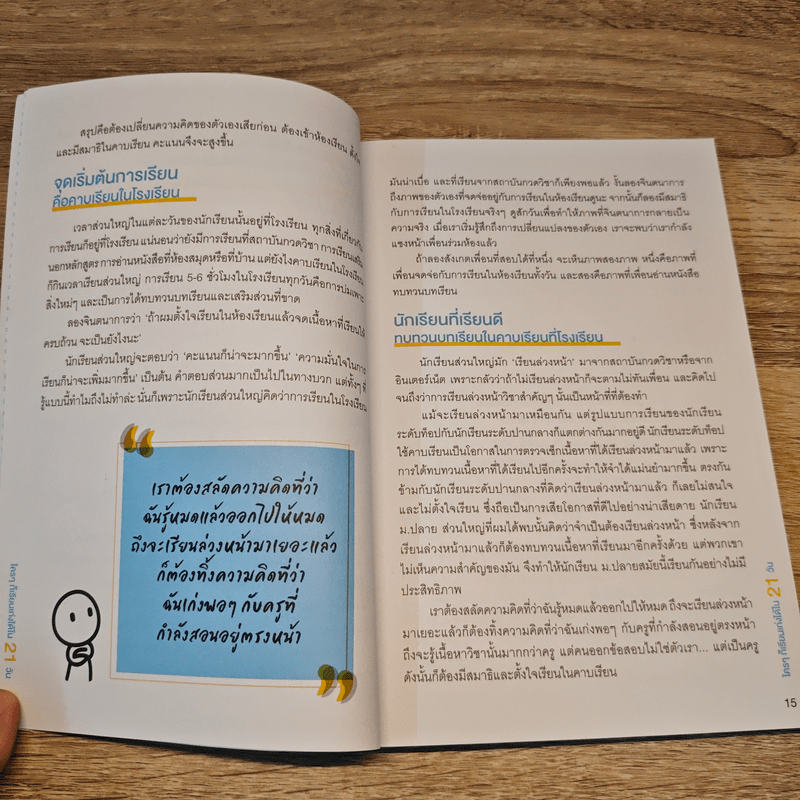 สรุปคือต้องเปลี่ยนความคิดของตัวเองเสียก่อน ต้องเข้าห้องเรียน ตั้งใจ
และมีสมาธิในคาบเรียน คะแนนจึงจะสูงขึ้น
จุดเริ่มต้นการเรียน
คือคาบเรียนในโรงเรียน
เวลาส่วนใหญ่ในแต่ละวันของนักเรียนนั้นอยู่ที่โรงเรียน ทุกสิ่งที่เกี่ยวกับ
การเรียนก็อยู่ที่โรงเรียน แน่นอนว่ายังมีการเรียนที่สถาบันกวดวิชา การเรียนเสริม
นอกหลักสูตร การอ่านหนังสือที่ห้องสมุดหรือที่บ้าน แต่ยังไงคาบเรียนในโรงเรียน
ก็กินเวลาเรียนส่วนใหญ่ การเรียน 5-6 ชั่วโมงในโรงเรียนทุกวันคือการบ่มเพาะ
สิ่งใหม่ๆ และเป็นการได้ทบทวนบทเรียนและเสริมส่วนที่ขาด
ลองจินตนาการว่า 'ถ้าผมตั้งใจเรียนในห้องเรียนแล้วจดเนื้อหาที่เรียนให้
ครบถ้วน จะเป็นยังไงนะ'
นักเรียนส่วนใหญ่จะตอบว่า 'คะแนนก็น่าจะมากขึ้น' 'ความมั่นใจในการ
เรียนก็น่าจะเพิ่มมากขึ้น' เป็นต้น คำตอบส่วนมากเป็นไปในทางบวก แต่ทั้งๆ ที่
รู้แบบนี้ทำไมถึงไม่ทำล่ะ นั่นก็เพราะนักเรียนส่วนใหญ่คิดว่าการเรียนในโรงเรียน
เราต้องสลัดความคิดที่ว่า
ฉันรู้หมดแล้วออกไปให้หมด
ถึงจะเรียนล่วงหน้ามาเยอะแล้ว
ก็ต้องทิ้งความคิดที่ว่า
ฉันเก่งพอๆ กับครูที่
กำลังสอนอยู่ตรงหน้า
ใครๆ ก็เรียนเก่งได้ใน 21 วัน
มันน่าเบื่อ และที่เรียนจากสถาบันกวดวิชาก็เพียงพอแล้ว งั้นลองจินตนาการ
ถึงภาพของตัวเองที่จดจ่ออยู่กับการเรียนในห้องเรียนดูนะ จากนั้นก็ลองมีสมาธิ
กับการเรียนในโรงเรียนจริงๆ ดูสักวันเพื่อทำให้ภาพที่จินตนาการกลายเป็น
ความจริง เมื่อเราเริ่มรู้สึกถึงการเปลี่ยนแปลงของตัวเอง เราจะพบว่าเรากำลัง
แซงหน้าเพื่อนร่วมห้องแล้ว
ถ้าลองสังเกตเพื่อนที่สอบได้ที่หนึ่ง จะเห็นภาพสองภาพ หนึ่งคือภาพที่
เพื่อนจดจ่อกับการเรียนในห้องเรียนทั้งวัน และสองคือภาพที่เพื่อนอ่านหนังสือ
ทบทวนบทเรียน
นักเรียนที่เรียนดี
ทบทวนบทเรียนในคาบเรียนที่โรงเรียน
นักเรียนส่วนใหญ่มัก 'เรียนล่วงหน้า' มาจากสถาบันกวดวิชาหรือจาก
อินเตอร์เน็ต เพราะกลัวว่าถ้าไม่เรียนล่วงหน้าก็จะตามไม่ทันเพื่อน และคิดไป
จนถึงว่าการเรียนล่วงหน้าวิชาสำคัญๆ นั้นเป็นหน้าที่ที่ต้องทำ
แม้จะเรียนล่วงหน้ามาเหมือนกัน แต่รูปแบบการเรียนของนักเรียน
ระดับท็อปกับนักเรียนระดับปานกลางก็แตกต่างกันมากอยู่ดี นักเรียนระดับท็อป
ใช้คาบเรียนเป็นโอกาสในการตรวจเช็กเนื้อหาที่ได้เรียนล่วงหน้ามาแล้ว เพราะ
การได้ทบทวนเนื้อหาที่ได้เรียนไปอีกครั้งจะทำให้จำได้แม่นยำมากขึ้น ตรงกัน
ข้ามกับนักเรียนระดับปานกลางที่คิดว่าเรียนล่วงหน้ามาแล้ว ก็เลยไม่สนใจ
และไม่ตั้งใจเรียน ซึ่งถือเป็นการเสียโอกาสที่ดีไปอย่างน่าเสียดาย นักเรียน
ม.ปลาย ส่วนใหญ่ที่ผมได้พบนั้นคิดว่าจำเป็นต้องเรียนล่วงหน้า ซึ่งหลังจาก
เรียนล่วงหน้ามาแล้วก็ต้องทบทวนเนื้อหาที่เรียนมาอีกครั้งด้วย แต่พวกเขา
ไม่เห็นความสำคัญของมัน จึงทำให้นักเรียน ม.ปลายสมัยนี้เรียนกันอย่างไม่มี
ประสิทธิภาพ
เราต้องสลัดความคิดที่ว่าฉันรู้หมดแล้วออกไปให้หมด ถึงจะเรียนล่วงหน้า
มาเยอะแล้วก็ต้องทิ้งความคิดที่ว่าฉันเก่งพอๆ กับครูที่กำลังสอนอยู่ตรงหน้า
ถึงจะรู้เนื้อหาวิชานั้นมากกว่าครู แต่คนออกข้อสอบไม่ใช่ตัวเรา... แต่เป็นครู
ดังนั้นก็ต้องมีสมาธิและตั้งใจเรียนในคาบเรียน
ใครๆ ก็เรียนเก่งได้ใน 21 วัน
15